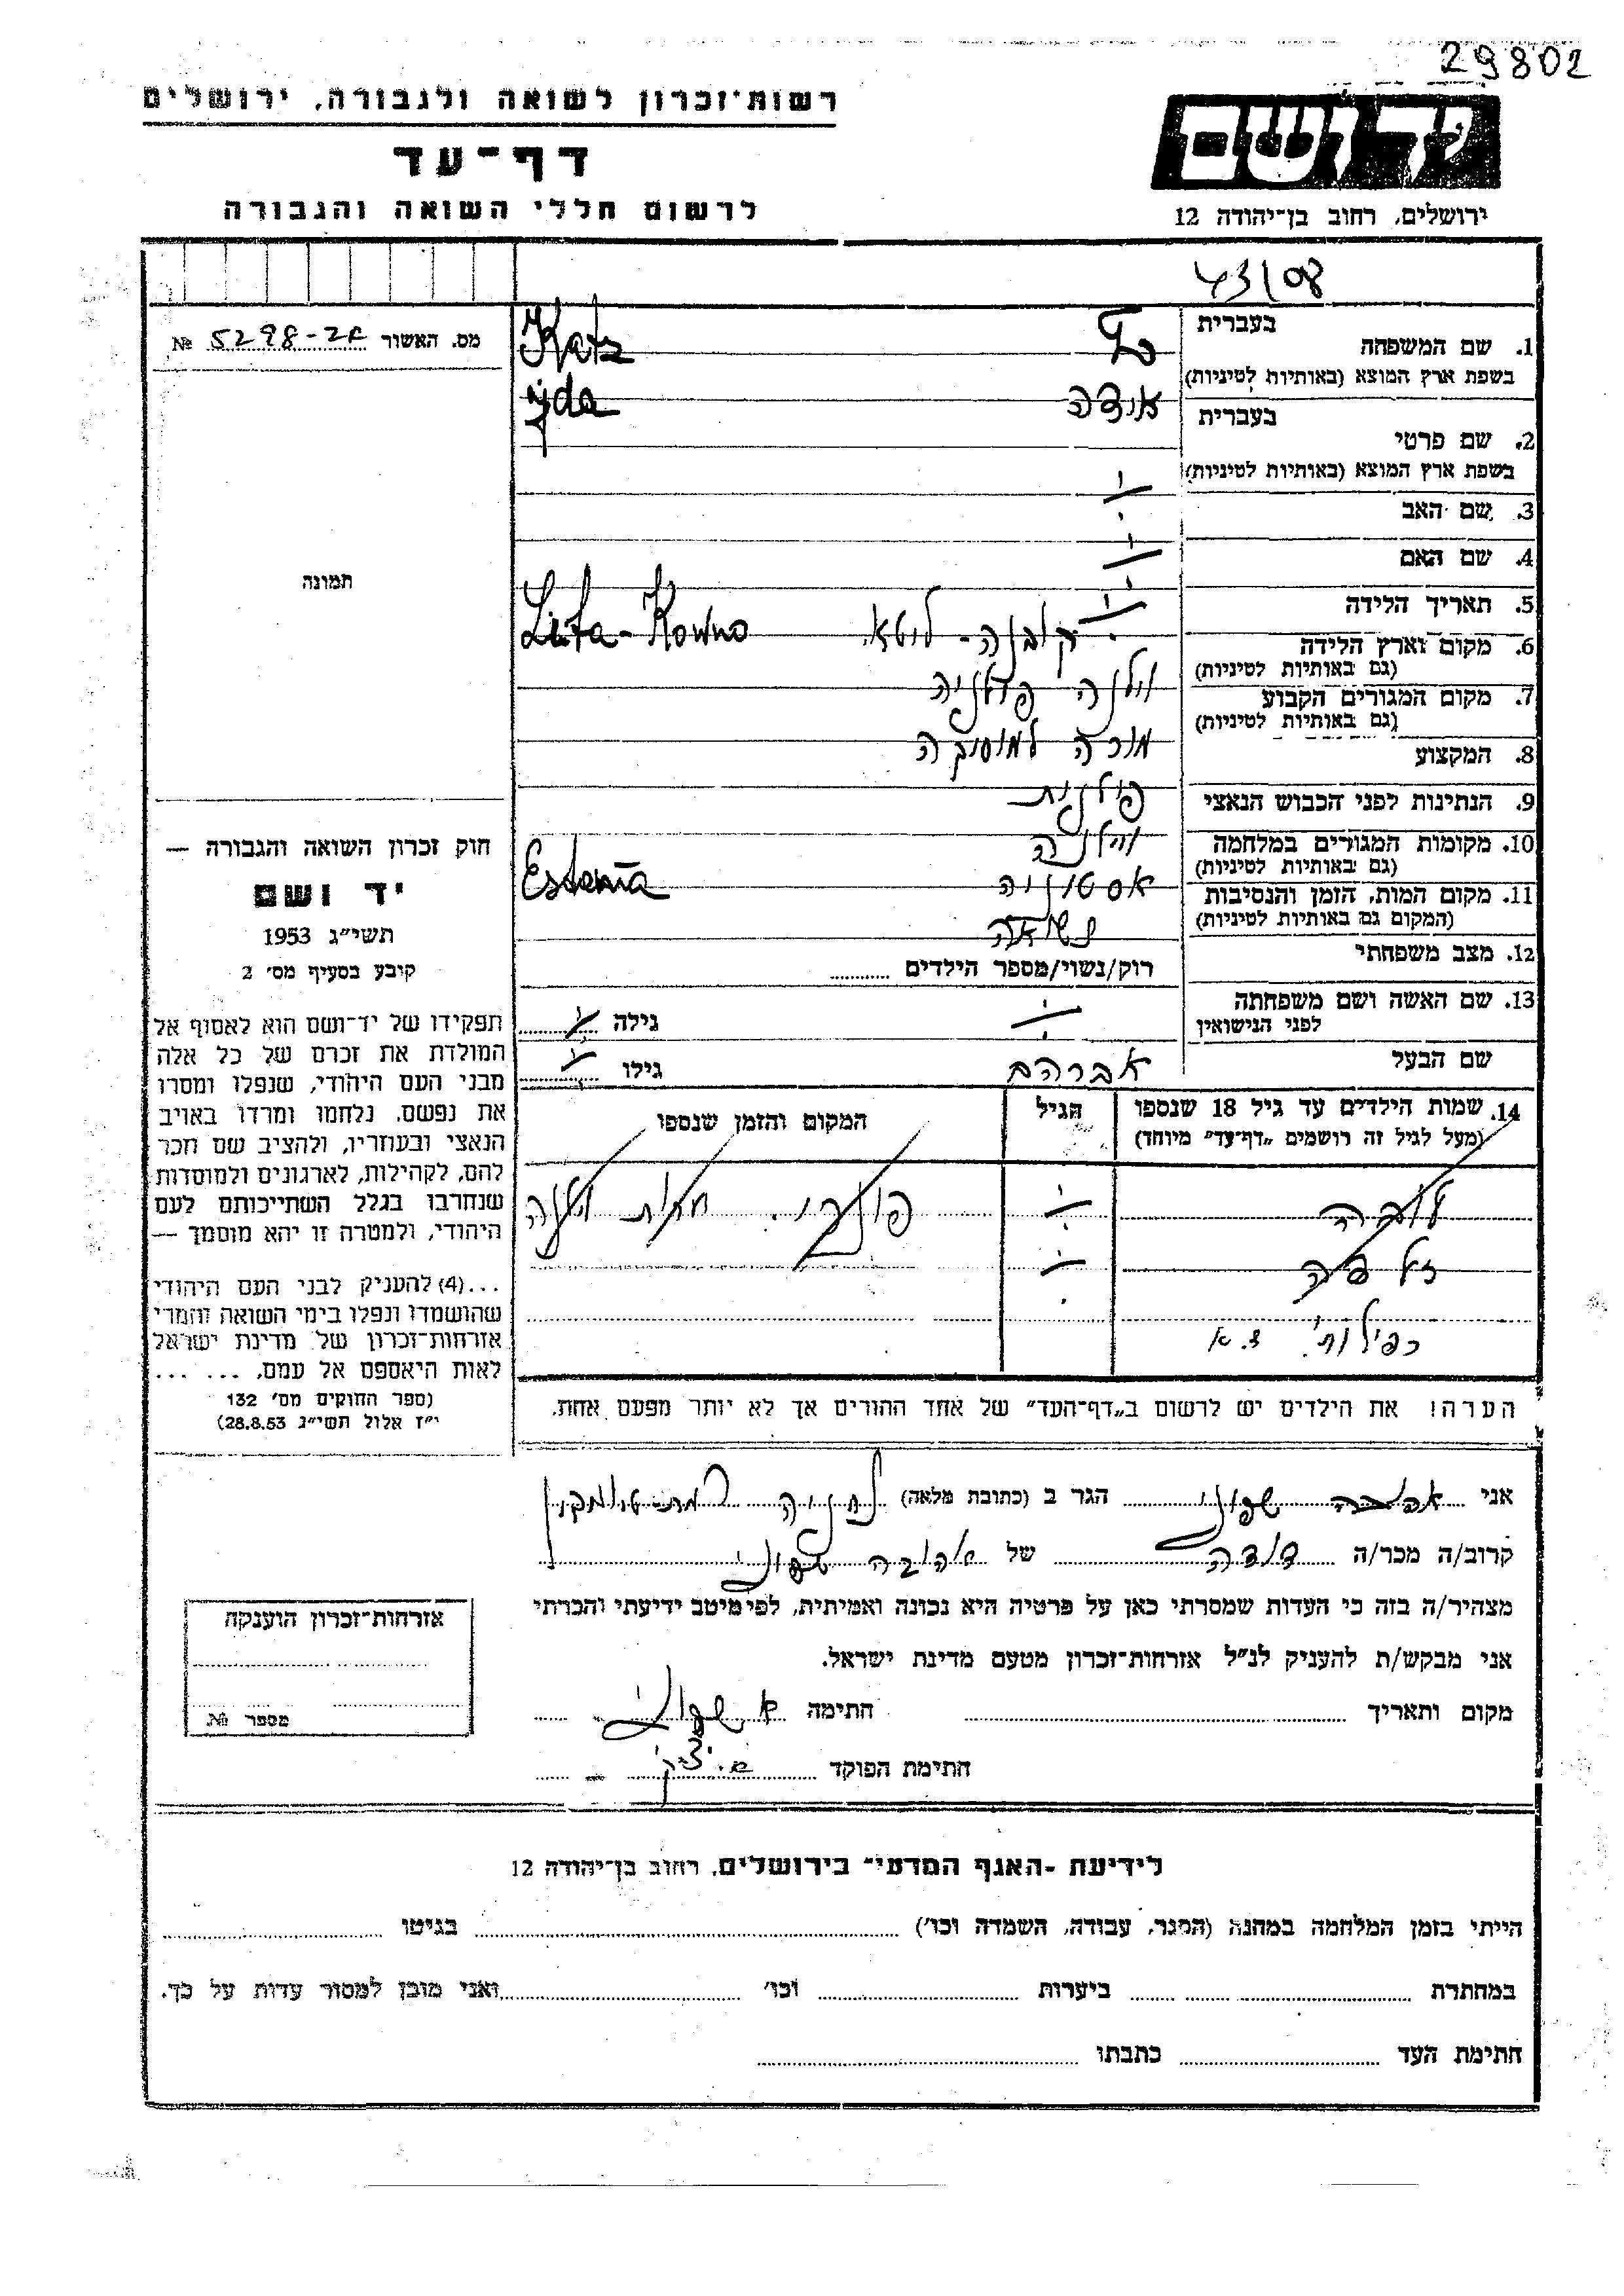 29802
רשות־זכרון לשואה ולגבורה, ירושלים
דף־עד
לרשום חללי השואה והגבורה
יד ושם
ירושלים, רחוב בן־יהודה 12
43/08
מס. האשור 5298-24 №
1. שם המשפחה
בעברית כץ
בשפת ארץ המוצא (באותיות לטיניות) Katz
2. שם פרטי
בעברית אידה
בשפת ארץ המוצא (באותיות לטיניות) ijda
3. שם האב
4. שם האם
5. תאריך הלידה
6. מקום וארץ הלידה
(גם באותיות לטיניות) קובנה - ליטא. Lita - Kowno
7. מקום המגורים הקבוע
(גם באותיות לטיניות) וילנה פולניה
8. המקצוע מורה למוסיקה
9. הנתינות לפני הכבוש הנאצי פולנית
10. מקומות המגורים במלחמה
(גם באותיות לטיניות) וילנה
11. מקום המות, הזמן והנסיבות
(המקום גם באותיות לטיניות) אסטוניה Estonia
12. מצב משפחתי נשואה
רוק/נשוי/מספר הילדים
13. שם האשה ושם משפחתה
לפני הנישואין
גילה
שם הבעל אברהם גילו
14. שמות הילדים עד גיל 18 שנספו
(מעל לגיל זה רושמים „דף־עד” מיוחד)
הגיל
המקום והזמן שנספו
ליד וילנה
כפילות
הערה! את הילדים יש לרשום ב„דף־העד” של אחד ההורים אך לא יותר מפעם אחת.
תמונה
חוק זכרון השואה והגבורה —
יד ושם
תשי״ג 1953
קובע בסעיף מס׳ 2
תפקידו של יד־ושם הוא לאסוף אל
המולדת את זכרם של כל אלה
מבני העם היהודי, שנפלו ומסרו
את נפשם, נלחמו ומרדו באויב
הנאצי ובעוזריו, ולהציב שם וזכר
להם, לקהילות, לארגונים ולמוסדות
שנחרבו בגלל השתייכותם לעם
היהודי, ולמטרה זו יהא מוסמך —
...(4) להעניק לבני העם היהודי
שהושמדו ונפלו בימי השואה והמרי
אזרחות־זכרון של מדינת ישראל
לאות היאספם אל עמם. ... ...
(ספר החוקים מס׳ 132
י״ז אלול תשי״ג 28.8.53)
אני הגר ב (כתובת מלאה) נתניה
קרוב/ה מכר/ה דודה של אהובה
מצהיר/ה בזה כי העדות שמסרתי כאן על פרטיה היא נכונה ואמיתית, לפי מיטב ידיעתי והכרתי
אני מבקש/ת להעניק לנ״ל אזרחות־זכרון מטעם מדינת ישראל.
מקום ותאריך חתימה
חתימת הפוקד
אזרחות־זכרון הוענקה
מספר №
לידיעת -האגף המדעי־ בירושלים, רחוב בן־יהודה 12
הייתי בזמן המלחמה במחנה (הסגר, עבודה, השמדה וכו׳) בגיטו
במחתרת ביערות וכו׳ ואני מוכן למסור עדות על כך.
חתימת העד כתבתו